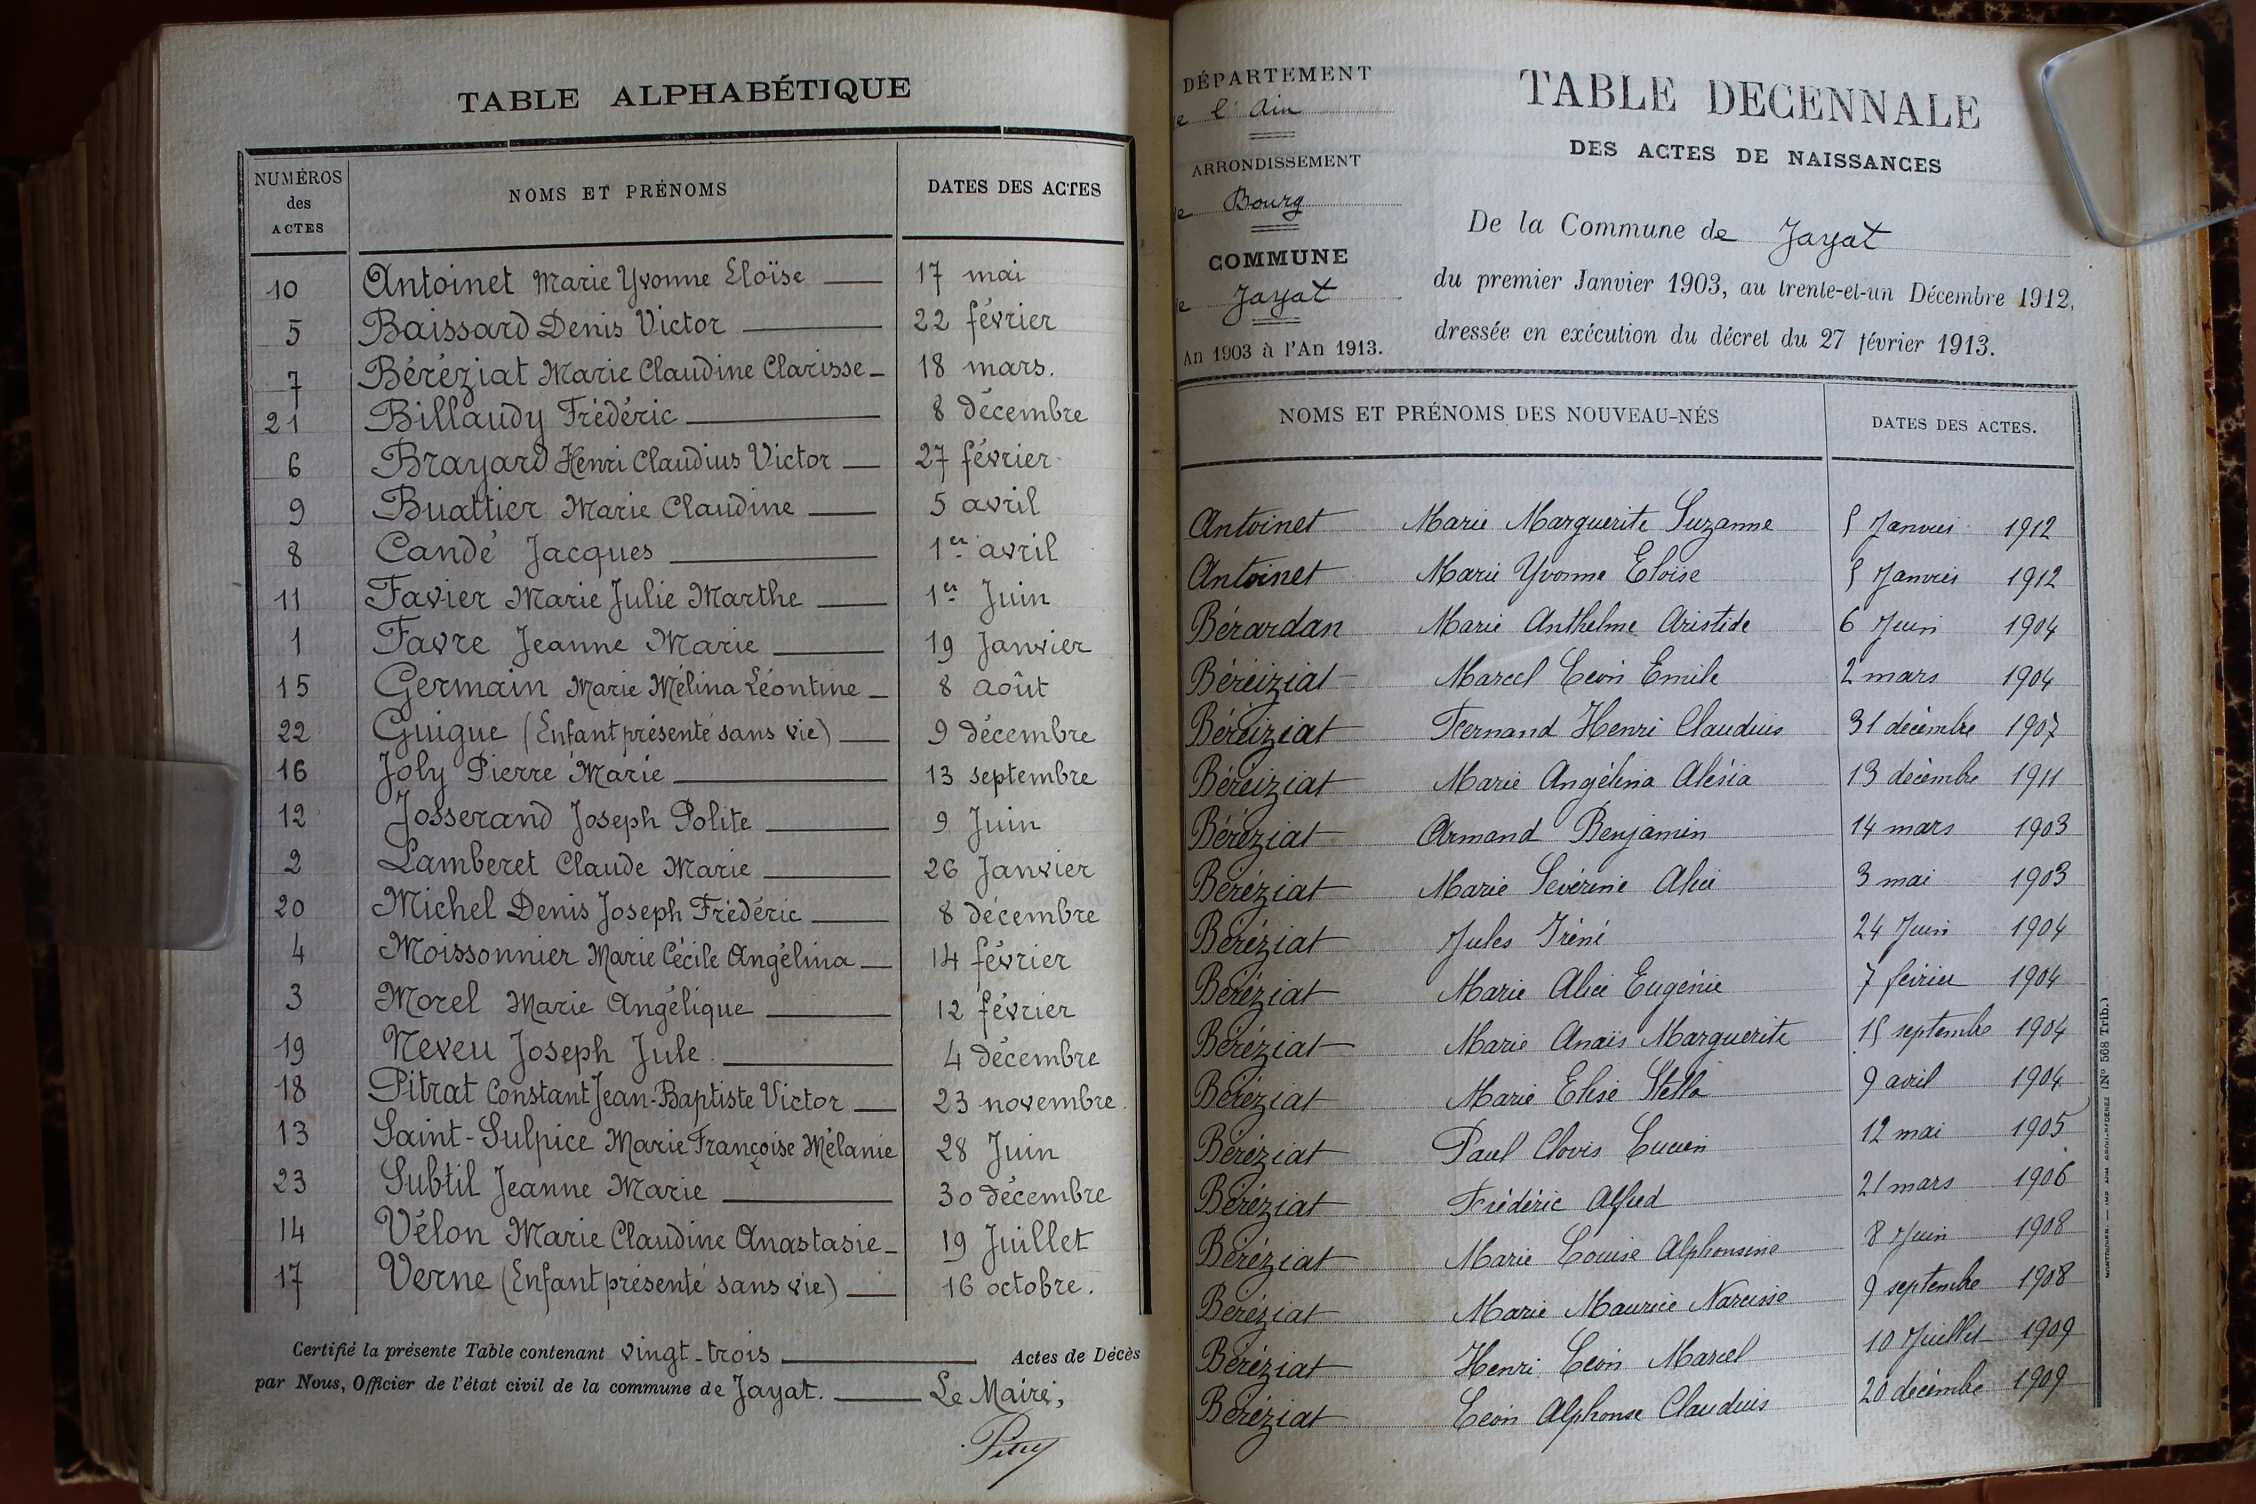 TABLE ALPHABÉTIQUE
NUMÉROS des ACTES NOMS ET PRÉNOMS DATES DES ACTES
10 Antoinet Marie Yvonne Eloïse 17 mai
5 Baissard Denis Victor 22 février
7 Béréziat Marie Claudine Clarisse 18 mars.
21 Billaudy Frédéric 8 décembre
6 Brayard Henri Claudius Victor 27 février
9 Buattier Marie Claudine 5 avril
8 Candé Jacques 1er avril
11 Favier Marie Julie Marthe 1er Juin
1 Favre Jeanne Marie 19 Janvier
15 Germain Marie Mélina Léontine 8 août
22 Guigue (Enfant présenté sans vie) 9 décembre
16 Joly Pierre Marie 13 septembre
12 Josserand Joseph Polite 9 Juin
2 Lamberet Claude Marie 26 Janvier
20 Michel Denis Joseph Frédéric 8 décembre
4 Moissonnier Marie Cécile Angélina 14 février
3 Morel Marie Angélique 12 février
19 Neveu Joseph Jule 4 décembre
18 Pitrat Constant Jean-Baptiste Victor 23 novembre
13 Saint-Sulpice Marie Françoise Mélanie 28 Juin
23 Subtil Jeanne Marie 30 décembre
14 Vélon Marie Claudine Anastasie 19 Juillet
17 Verne (Enfant présenté sans vie) 16 octobre.
Certifié la présente Table contenant vingt-trois Actes de Décès
par Nous, Officier de l'état civil de la commune de Jayat. Le Maire,
DÉPARTEMENT
e l'Ain
ARRONDISSEMENT
e Bourg
COMMUNE
e Jayat
An 1903 à l'An 1913.
TABLE DECENNALE
DES ACTES DE NAISSANCES
De la Commune de Jayat
du premier Janvier 1903, au trente-et-un Décembre 1912,
dressée en exécution du décret du 27 février 1913.
NOMS ET PRÉNOMS DES NOUVEAU-NÉS DATES DES ACTES.
Antoinet Marie Marguerite Suzanne 5 Janvier 1912
Antoinet Marie Yvonne Eloïse 5 Janvier 1912
Bérardan Marie Anthelme Aristide 6 Juin 1904
Béréiziat Marcel Léon Emile 2 mars 1904
Béréiziat Fernand Henri Claudius 31 décembre 1907
Béréiziat Marie Angélina Alésia 13 décembre 1911
Béréziat Armand Benjamin 14 mars 1903
Béréziat Marie Séverine Alice 3 mai 1903
Béréziat Jules Iréné 24 Juin 1904
Béréziat Marie Alice Eugénie 7 février 1904
Béréziat Marie Anaïs Marguerite 15 septembre 1904
Béréziat Marie Elise Stella 9 avril 1904
Béréziat Paul Clovis Lucien 12 mai 1905
Béréziat Frédéric Alfred 21 mars 1906
Béréziat Marie Louise Alphonsine 8 Juin 1908
Béréziat Marie Maurice Narcisse 9 septembre 1908
Béréziat Henri Léon Marcel 10 Juillet 1909
Béréziat Léon Alphonse Claudius 20 décembre 1909
(N° 568 Trib.)